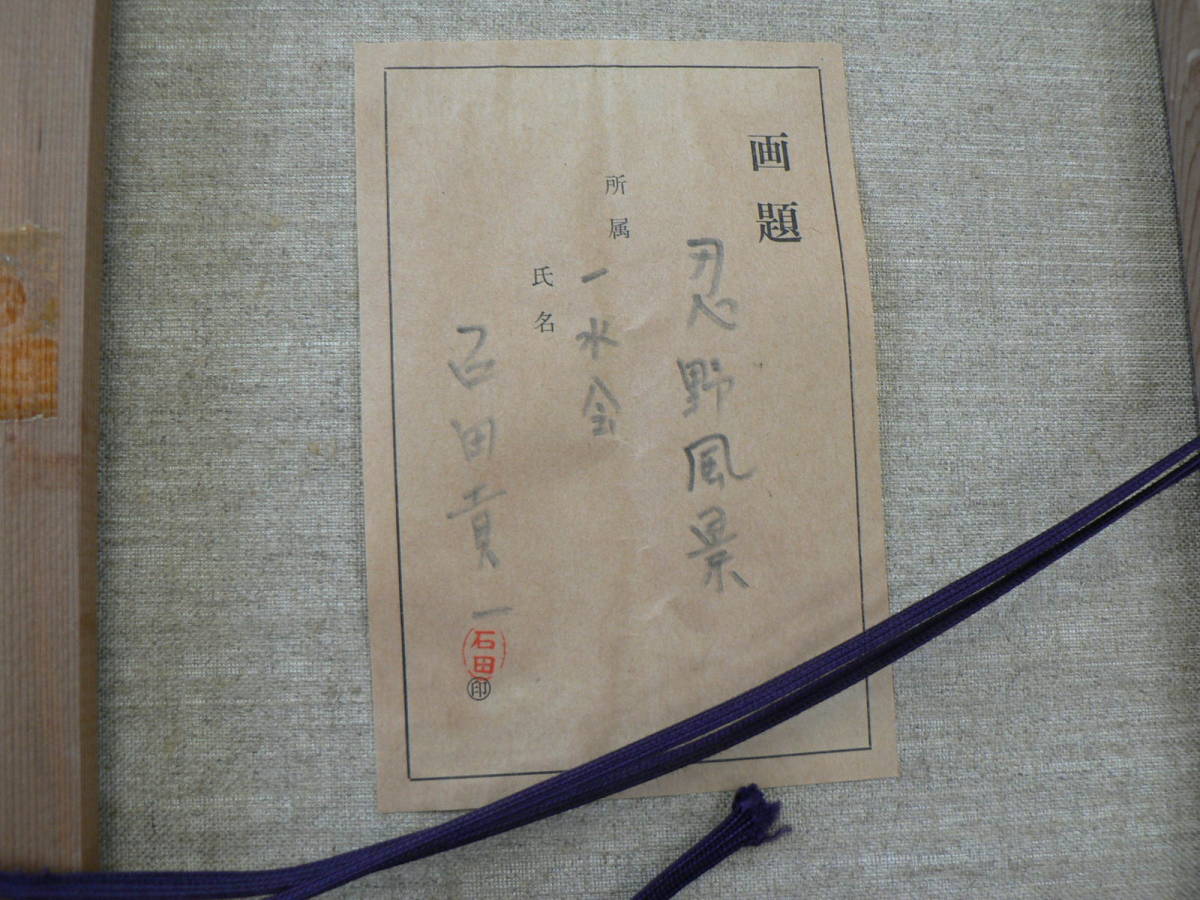 画題
忍野風景
所属
一水会
氏名
石田貢一
石田
印